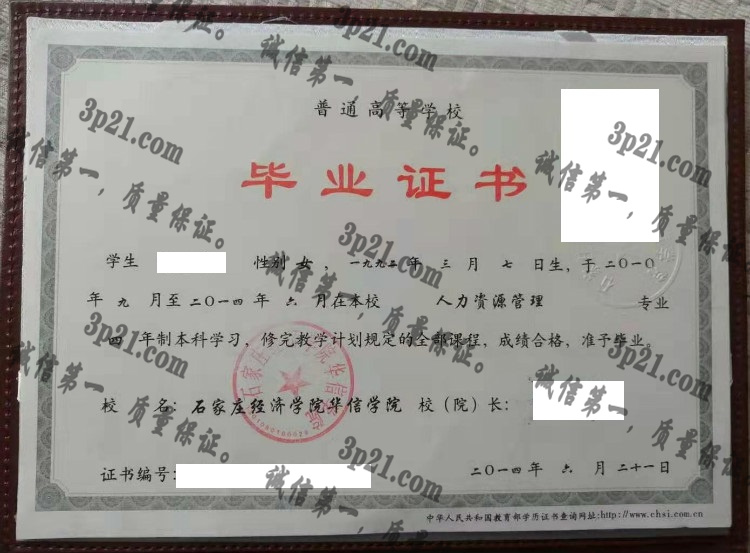 普通高等学校
毕业证书
学生 性别 女，一九九二年 三 月 七 日生，于二〇一〇
年 九 月至二〇一四年 六 月在本校 人力资源管理 专业
四 年制本科学习，修完教学计划规定的全部课程，成绩合格，准予毕业。
校 名：石家庄经济学院华信学院 校（院）长：
证书编号： 二〇一四年 六 月 二十一日
中华人民共和国教育部学历证书查询网址:http://www.chsi.com.cn
石家庄 院华信学院
3p21.com
诚信第一，质量保证。
3p21.com
诚信第一，质量保证。
3p21.com
诚信第一，质量保证。
3p21.com
诚信第一，质量保证。
3p21.com
诚信第一，质量保证。
3p21.com
诚信第一，质量保证。
3p21.com
诚信第一，质量保证。
3p21.com
诚信第一，质量保证。